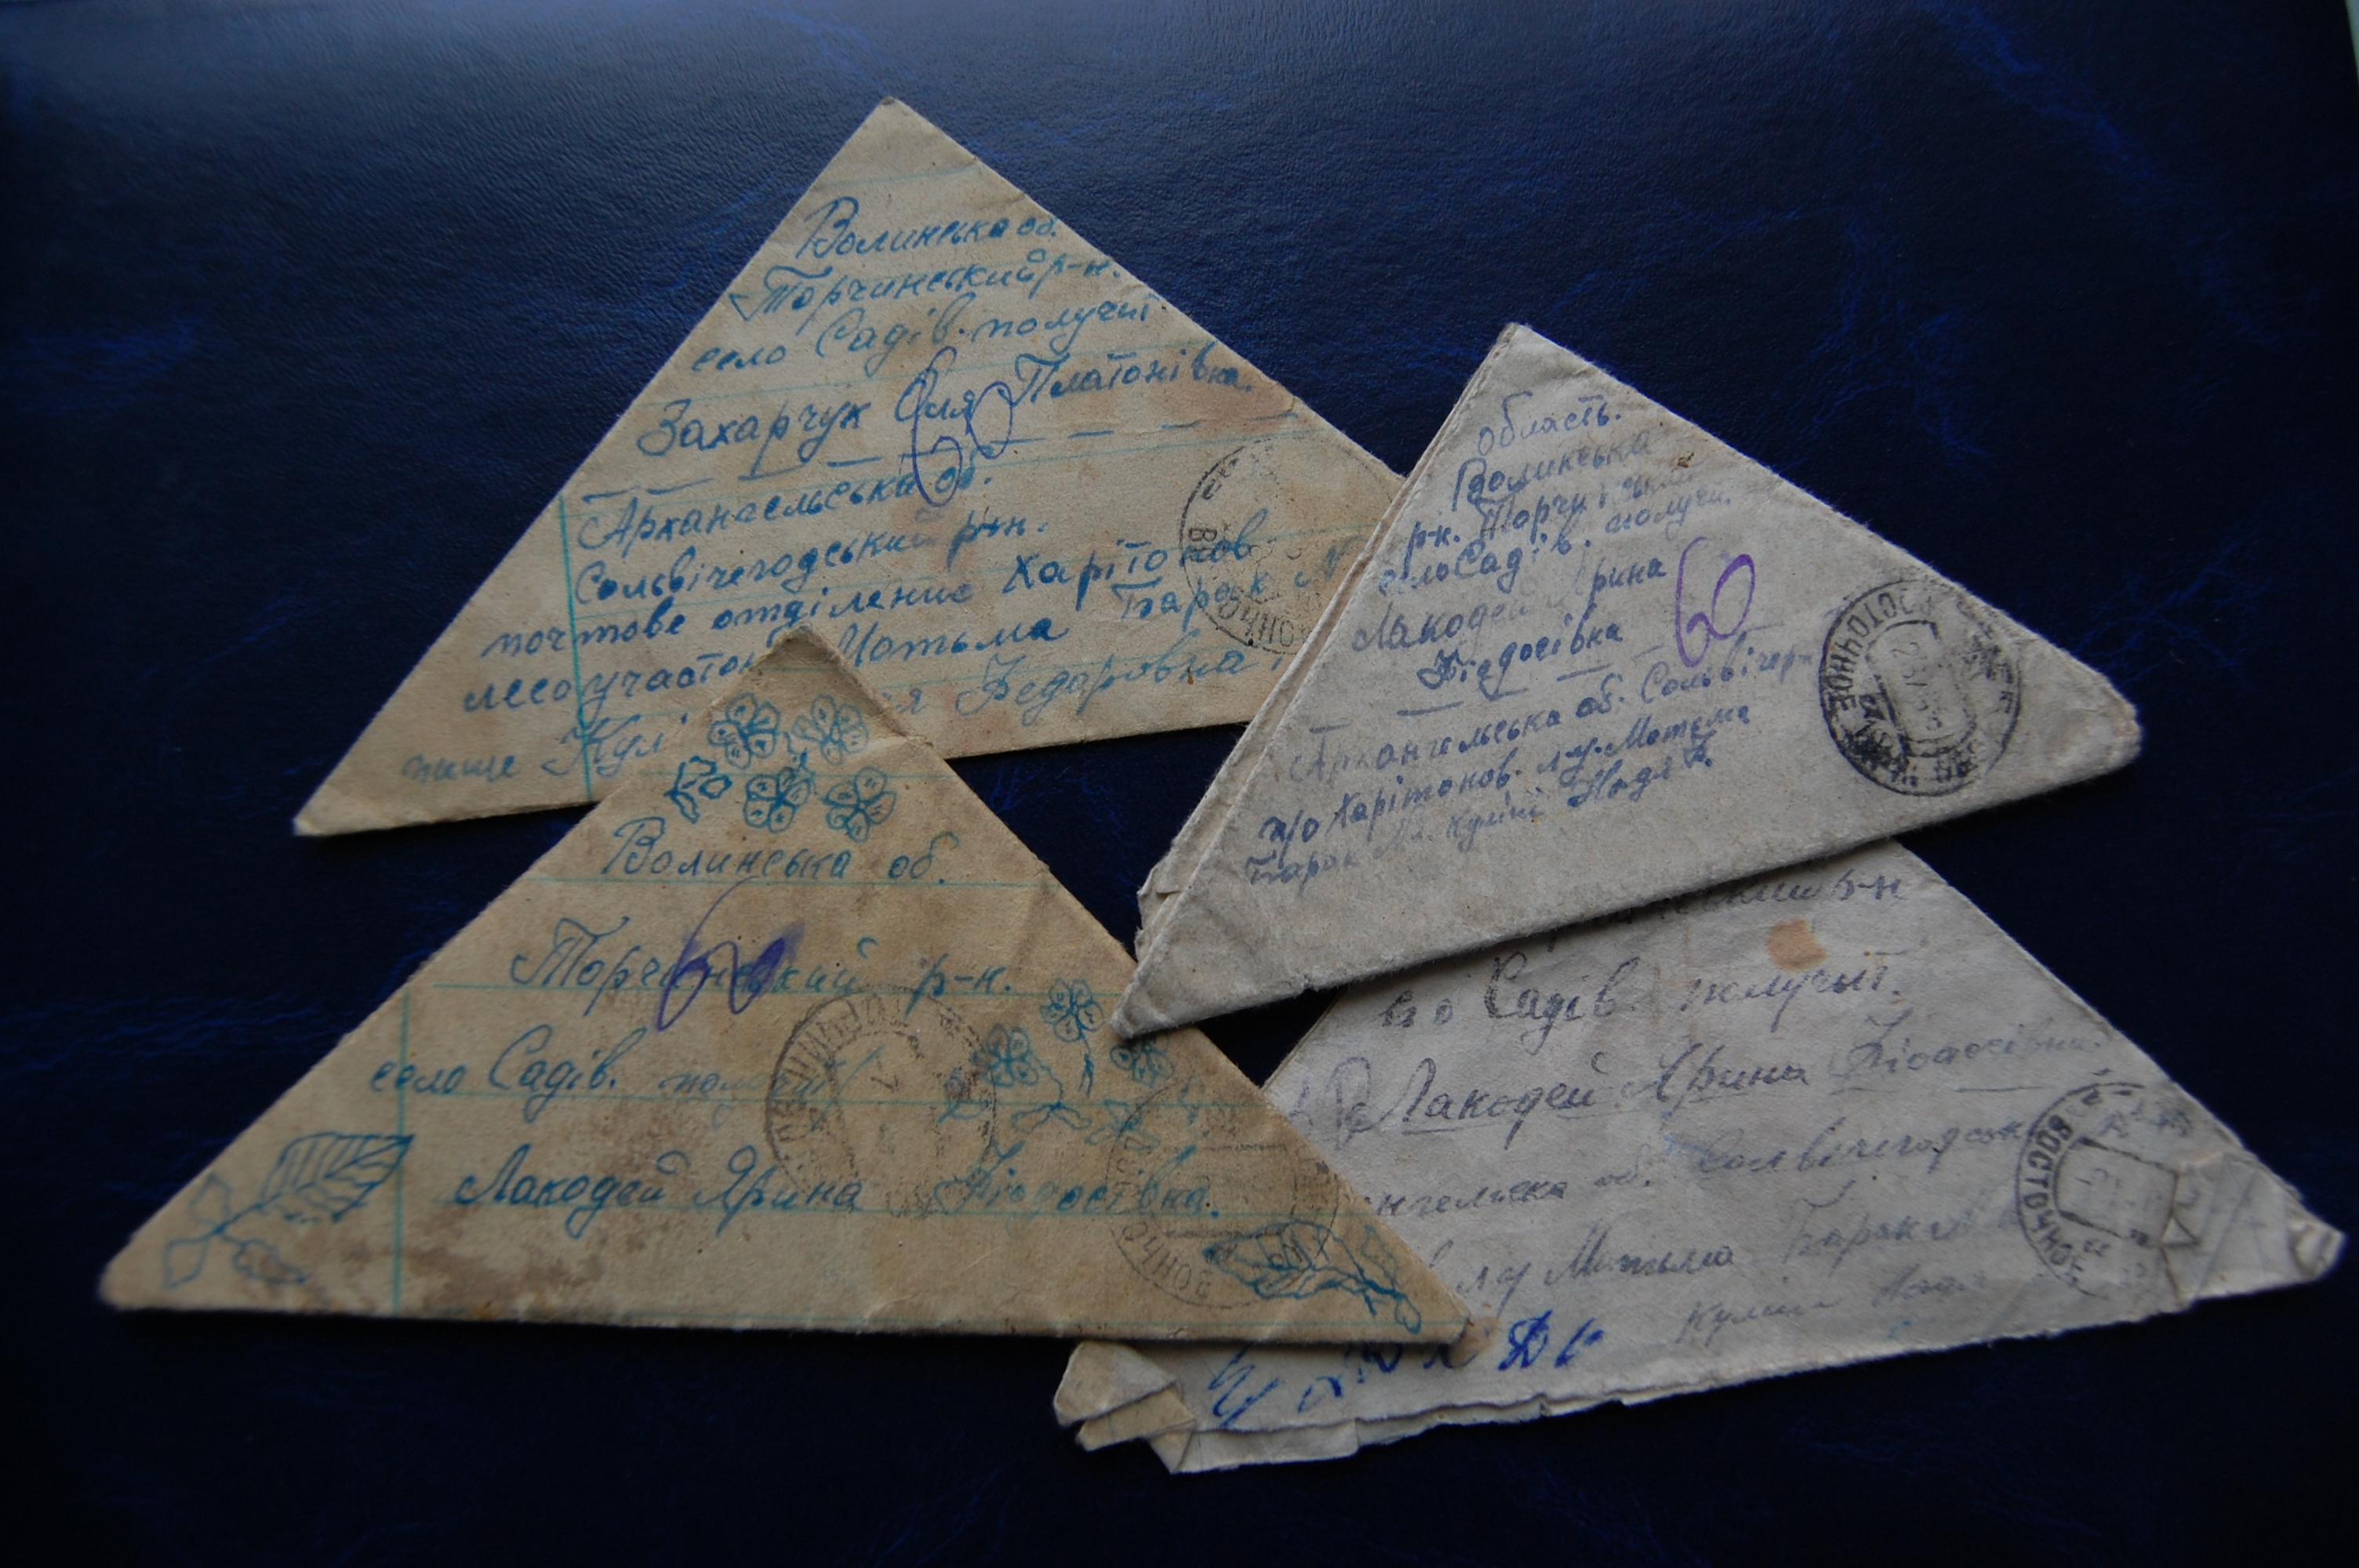 Волинська об.
Торчинський р-н.
село Садів. получит
Захарчук Оля Платонівна.
60
Архангельська об.
Сольвічегодський р-н.
почтове отділение Харітонов
лесоучасток Мотьма Барак №
пише Федоровна
область.
Волинська
р-н. Торчинський
село Садів. получ.
Лакодей Ярина
Фіодосівка
60
Архангельська об. Сольвічег
п/о Харітонов. л.у. Мотьма
Барак №
ВОСТОЧНОЕ
Волинська об.
Торчинський р-н.
60
село Садів. получит
Лакодей Ярина Фіодосівка.
р-н
Садів получит.
Лакодей Ярина Фіодосівка.
нгельска об. Сольвічегодськ
л у Мотьма Барак №
ВОСТОЧН